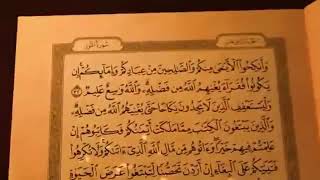 سُورَةُ النُّورِ
وَأَنكِحُوا۟ ٱلْأَيَـٰمَىٰ مِنكُمْ وَٱلصَّـٰلِحِينَ مِنْ عِبَادِكُمْ وَإِمَآئِكُمْ إِن
يَكُونُوا۟ فُقَرَآءَ يُغْنِهِمُ ٱللَّهُ مِن فَضْلِهِۦ وَٱللَّهُ وَٰسِعٌ عَلِيمٌ ٣٢
وَلْيَسْتَعْفِفِ ٱلَّذِينَ لَا يَجِدُونَ نِكَاحًا حَتَّىٰ يُغْنِيَهُمُ ٱللَّهُ مِن فَضْلِهِۦ
وَٱلَّذِينَ يَبْتَغُونَ ٱلْكِتَـٰبَ مِمَّا مَلَكَتْ أَيْمَـٰنُكُمْ فَكَاتِبُوهُمْ إِنْ
عَلِمْتُمْ فِيهِمْ خَيْرًا وَءَاتُوهُم مِّن مَّالِ ٱللَّهِ ٱلَّذِىٓ ءَاتَىٰكُمْ وَلَا تُكْرِهُوا۟
فَتَيَـٰتِكُمْ عَلَى ٱلْبِغَآءِ إِنْ أَرَدْنَ تَحَصُّنًا لِّتَبْتَغُوا۟ عَرَضَ ٱلْحَيَوٰةِ